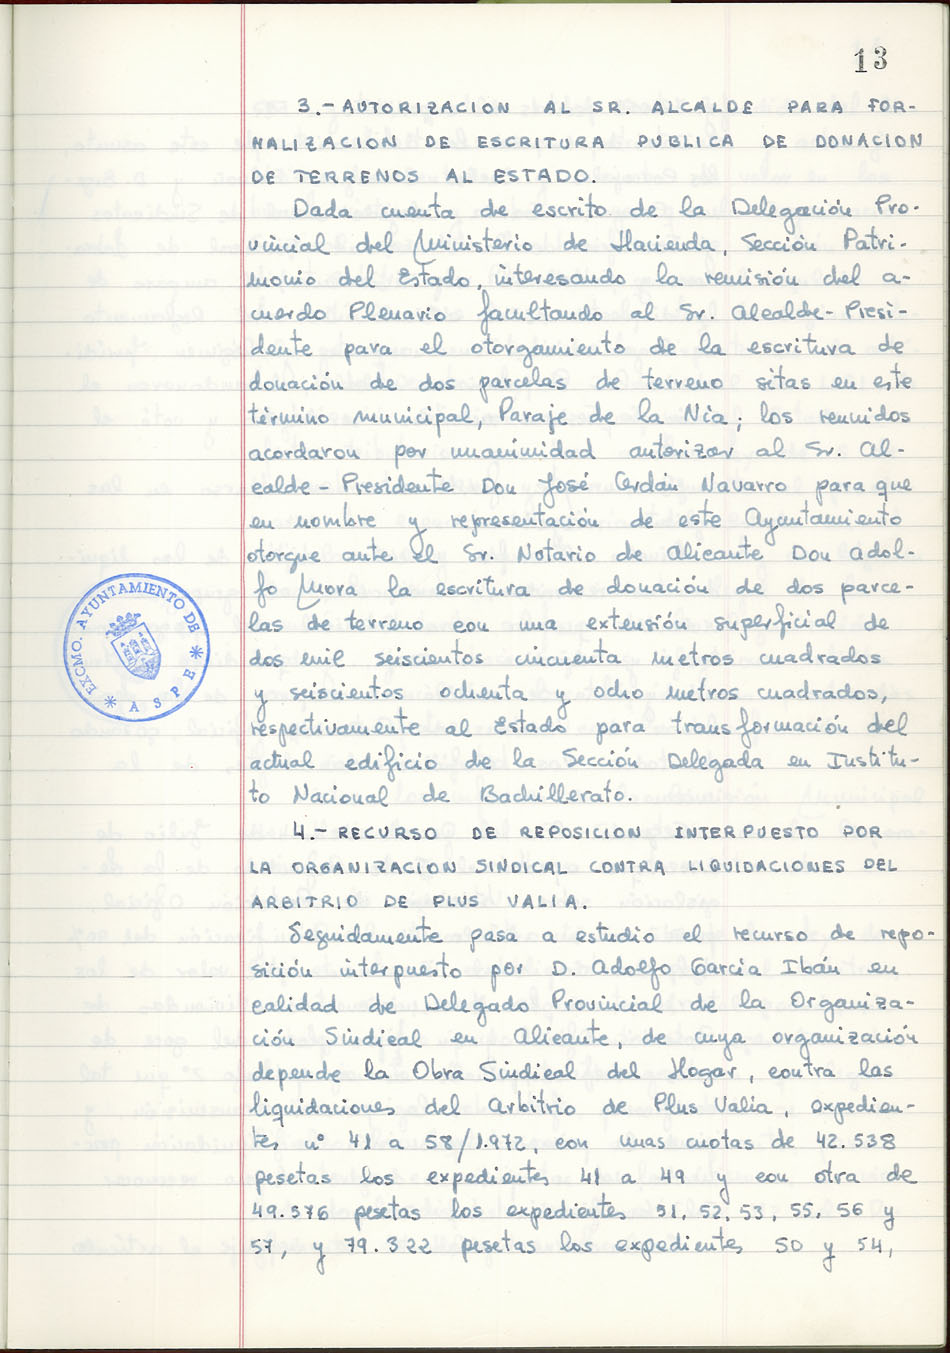 13
3.- AUTORIZACION AL SR. ALCALDE PARA FOR-
MALIZACION DE ESCRITURA PUBLICA DE DONACION
DE TERRENOS AL ESTADO.
Dada cuenta de escrito de la Delegación Pro-
vincial del Ministerio de Hacienda, Sección Patri-
monio del Estado, interesando la remisión del a-
cuerdo Plenario facultando al Sr. Alcalde-Presi-
dente para el otorgamiento de la escritura de
donación de dos parcelas de terreno sitas en este
término municipal, Paraje de la Nía; los reunidos
acordaron por unanimidad autorizar al Sr. Al-
calde-Presidente Don José Cerdán Navarro para que
en nombre y representación de este Ayuntamiento
otorgue ante el Sr. Notario de Alicante Don Adol-
fo Mora la escritura de donación de dos parce-
las de terreno con una extensión superficial de
dos mil seiscientos cincuenta metros cuadrados
y seiscientos ochenta y ocho metros cuadrados,
respectivamente al Estado para transformación del
actual edificio de la Sección Delegada en Institu-
to Nacional de Bachillerato.
4.- RECURSO DE REPOSICION INTERPUESTO POR
LA ORGANIZACION SINDICAL CONTRA LIQUIDACIONES DEL
ARBITRIO DE PLUS VALIA.
Seguidamente pasa a estudio el recurso de repo-
sición interpuesto por D. Adolfo García Ibán en
calidad de Delegado Provincial de la Organiza-
ción Sindical en Alicante, de cuya organización
depende la Obra Sindical del Hogar, contra las
liquidaciones del Arbitrio de Plus Valía, expedien-
tes nº 41 a 58/1.972, con unas cuotas de 42.538
pesetas los expedientes 41 a 49 y con otra de
49.576 pesetas los expedientes 51, 52, 53, 55, 56 y
57, y 79.322 pesetas los expedientes 50 y 54,
EXCMO. AYUNTAMIENTO DE
* ASPE *